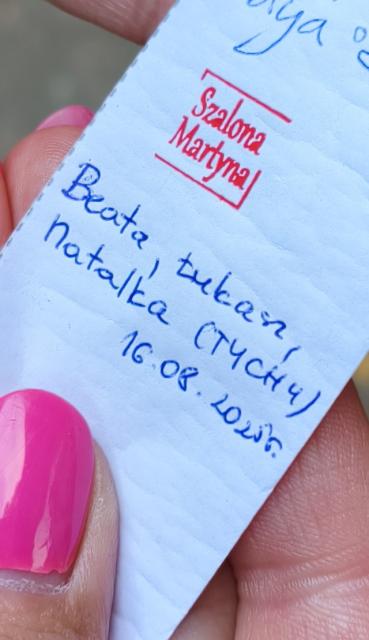 Szalona
Martyna
Beata, Łukasz,
Natalka (TYCHY)
16.08.2025r.